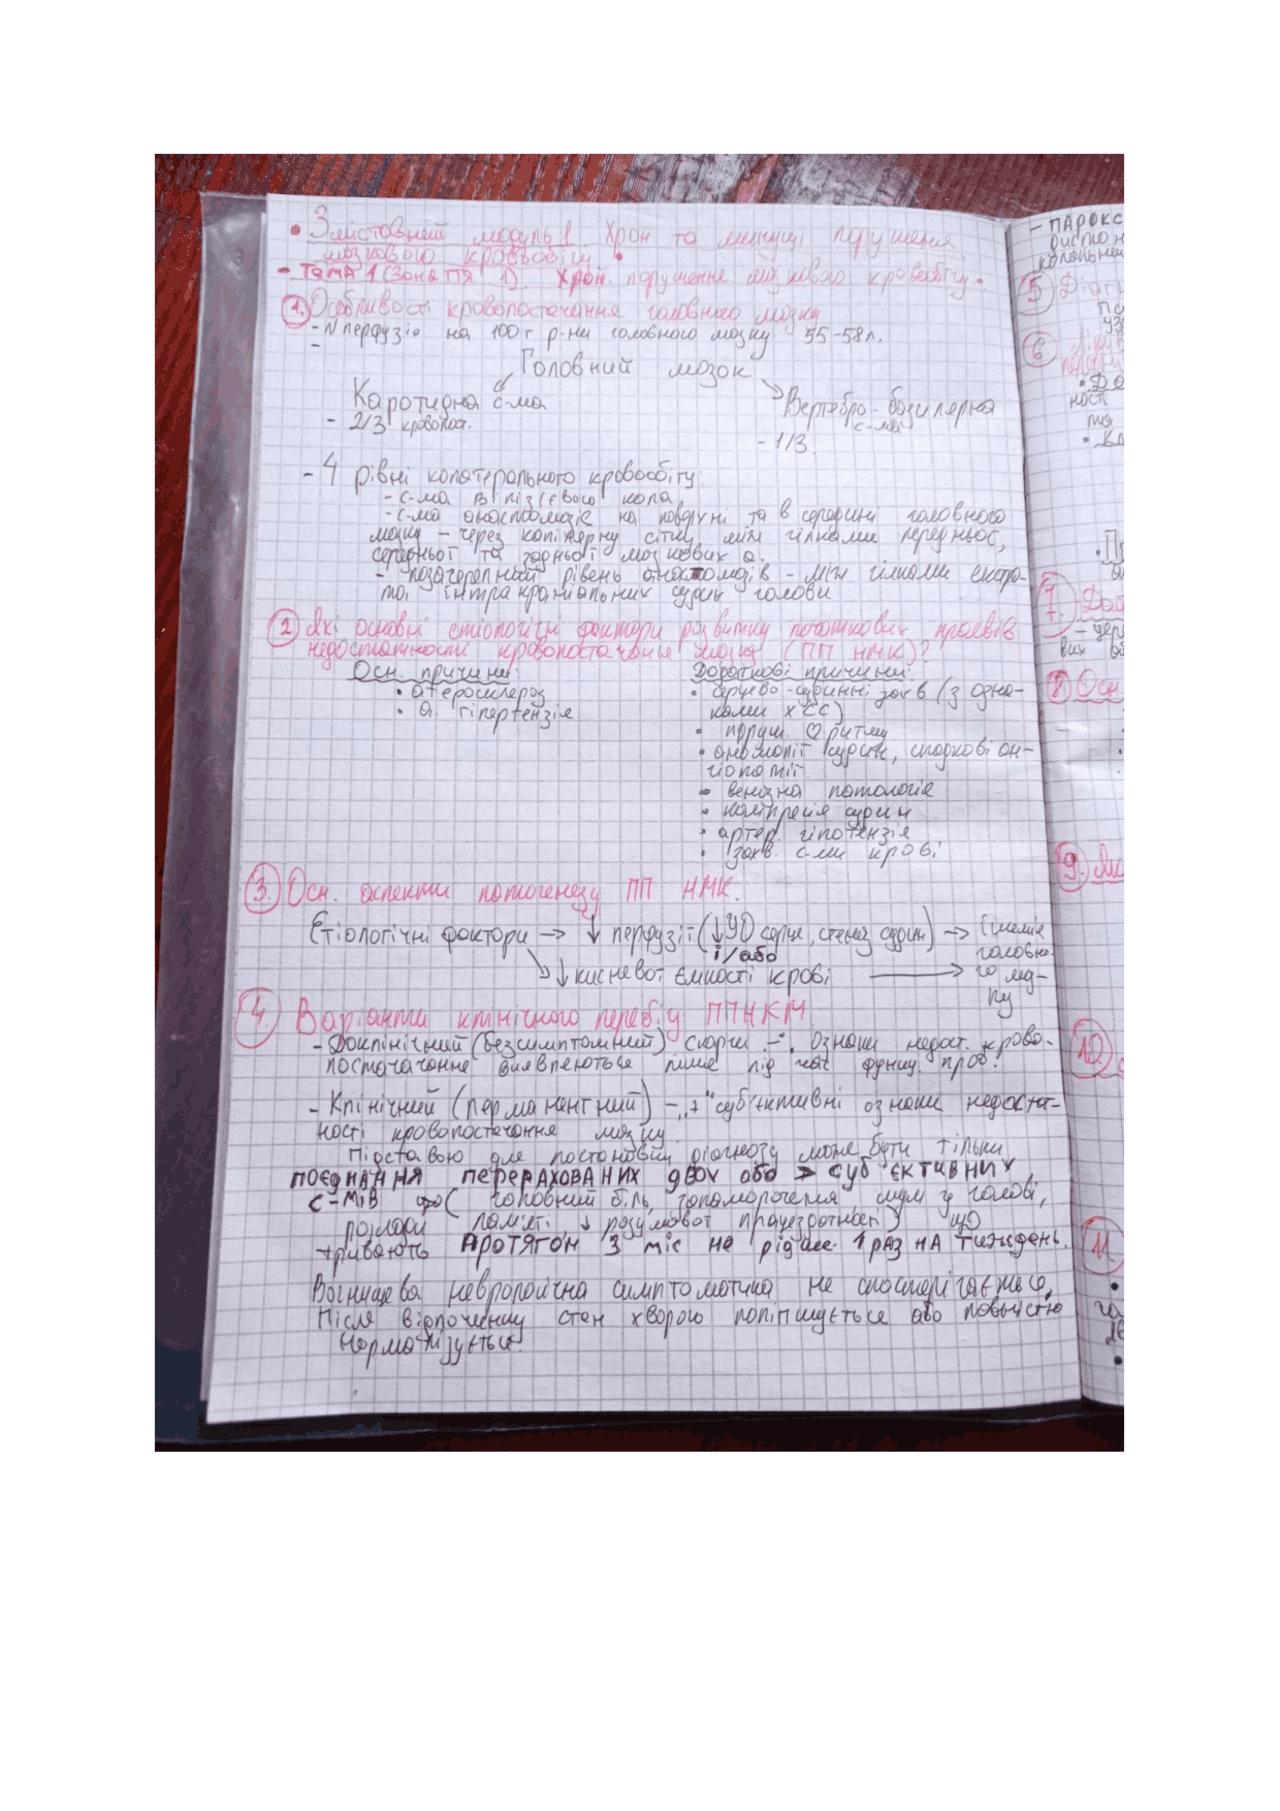 • Змістовний модуль 1. Хрон та минущі порушення
мозкового кровообігу •
- Тема 1 (Заняття 1). Хрон. порушення мозкового кровообігу.
1. Особливості кровопостачання головного мозку
- N перфузія на 100 г р-ни головного мозку 55-58л.
-
Головний мозок
Каротидна с-ма
- 2/3 кровопост.
Вертебро-базилярна
с-ма
- 1/3.
- 4 рівні колатерального кровообігу:
- с-ма Вілізієвого кола
- с-ма анастомозів на поверхні та в середині головного
мозку - через капілярну сітку між гілками передньої,
середньої та задньої мозкових а.
- позачерепний рівень анастомозів - між гілками екстра-
та інтракраніальних судин голови
2 Які основні етіологічні фактори розвитку початкових проявів
недостатності кровопостачання мозку (ПП НМК)?
Осн. причини:
• атеросклероз
• а. гіпертензія
Додаткові причини:
• серцево-судинні захв (з озна-
ками ХСС)
• поруш. ♡ ритму
• аномалії судин, спадкові ан-
гіопатії
• венозна патологія
• компресія судин
• артер. гіпотензія
• захв. с-ми крові
3. Осн. аспекти патогенезу ПП НМК.
Етіологічні фактори → ↓ перфузії (↓УО серця, стеноз судин) → Ішемія
і/або
головно-
↓ кисневої ємності крові → го моз-
ку
4. Варіанти клінічного перебігу ППНКМ
- Доклінічний (безсимптомний) скарги "-". Ознаки недост. крово-
постачання виявляються лише під час функц. проб.
- Клінічний (перманентний) - "+" суб'єктивні ознаки недоста-
ності кровопостачання мозку.
Підставою для постановки діагнозу може бути тільки
поєднання перерахованих двох або > суб'єктивних
с-мів (головний біль, запаморочення, шум у голові,
розлади пам'яті, ↓ розумової працездатності) що
тривають протягом 3 міс не рідше 1 раз на тиждень.
Вогнищева неврологічна симптоматика не спостерігається,
Після відпочинку стан хворого поліпшується або повністю
нормалізується.
- ПАРОКС
5
6
7.
8 Осн.
9.
10.
11.